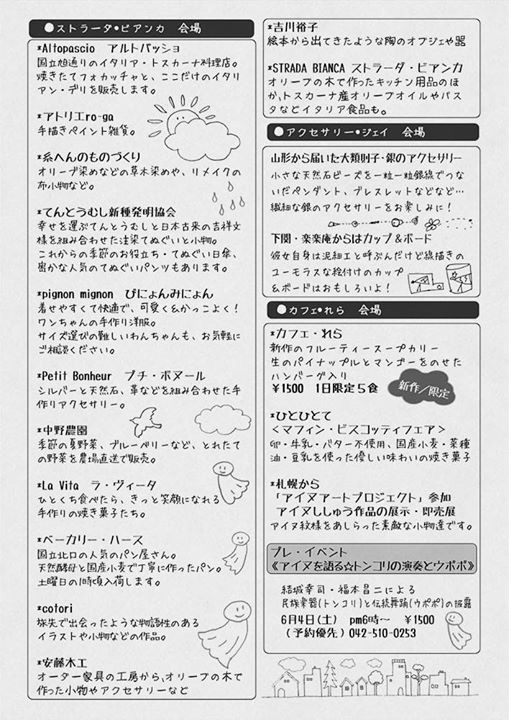 ●ストラーダ•ビアンカ　会場
*Altopascio　アルトパッショ
国立旭通りのイタリア・トスカーナ料理店。
焼きたてフォカッチャと、ここだけのイタリ
アン・デリを販売します。
*アトリエro-ga
手描きペイント雑貨。
*糸へんのものづくり
オリーブ染めなどの草木染めや、リメイクの
布小物など。
*てんとうむし新種発明協会
幸せを運ぶてんとうむしと日本古来の吉祥文
様を組み合わせた注染てぬぐいと小物。
これからの季節のお役立ち・てぬぐい日傘、
密かな人気のてぬぐいパンツもあります。
*pignon mignon　ぴにょんみにょん
着せやすくて快適で、可愛く&かっこよく！
ワンちゃんの手作り洋服。
サイズ選びの難しいわんちゃんも、お気軽に
ご相談ください。
*Petit Bonheur　プチ・ボヌール
シルバーと天然石、革などを組み合わせた手
作りアクセサリー。
*中野農園
季節の夏野菜、ブルーベリーなど、とれたて
の野菜を農場直送で販売。
*La Vita　ラ・ヴィータ
ひとくち食べたら、きっと笑顔になれる
手作りの焼き菓子たち。
*ベーカリー・ハース
国立北口の人気のパン屋さん。
天然酵母と国産小麦で丁寧に作ったパン。
土曜日の11時頃入荷します。
*cotori
旅先で出会ったような物語性のある
イラストや小物などの作品。
*安藤木工
オーダー家具の工房から、オリーブの木で
作った小物やアクセサリーなど
*吉川裕子
絵本から出てきたような陶のオブジェや器
*STRADA BIANCA ストラーダ・ビアンカ
オリーブの木で作ったキッチン用品のほ
か、トスカーナ産オリーブオイルやパス
タなどイタリア食品も。
●アクセサリー•ジェイ　会場
山形から届いた大類財子・銀のアクセサリー
小さな天然石ビーズを一粒一粒銀線でつな
いだペンダント、ブレスレットなどなど…
繊細な銀のアクセサリーをお楽しみに！
下関・楽楽庵からはカップ＆ボード
彼女自身は泥細工と呼ぶんだけど線描きの
ユーモラスな絵付けのカップ
＆ボードはおもしろいよ！
●カフェ•れら　会場
*カフェ・れら
新作のフルーティースープカリー
生のパイナップルとマンゴーをのせた
ハンバーグ入り
￥1500　1日限定５食
新作／限定
*ひとひとて
＜マフィン・ビスコッティフェア＞
卵・牛乳・バター不使用、国産小麦・菜種
油・豆乳を使った優しい味わいの焼き菓子
*札幌から
「アイヌアートプロジェクト」参加
アイヌししゅう作品の展示・即売展
アイヌ紋様をあしらった素敵な小物達です。
プレ・イベント
《アイヌを語る☆トンコリの演奏とウポポ》
結城幸司・福本昌二による
民族楽器(トンコリ)と伝統舞踊(ウポポ)の披露
6月4日(土)　pm6時〜　￥1500
（予約優先）042-510-0253